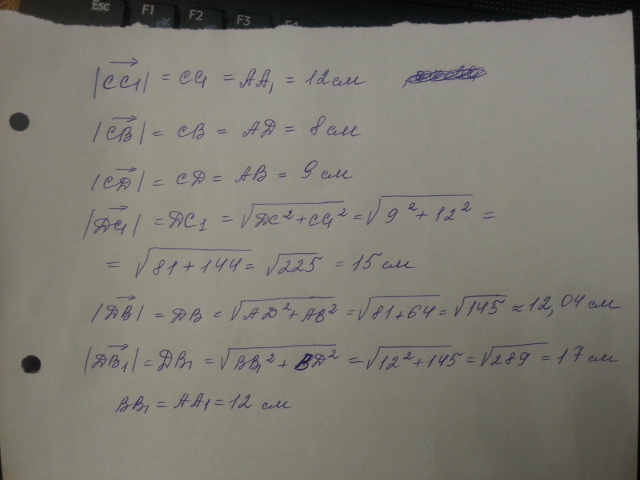 Esc F1 F2 F3 F4
|CC₁→| = CC₁ = AA₁ = 12 см
|CB→| = CB = AD = 8 см
|CD→| = CD = AB = 9 см
|DC₁→| = DC₁ = √(DC² + CC₁²) = √(9² + 12²) =
= √(81 + 144) = √225 = 15 см
|DB→| = DB = √(AD² + AB²) = √(81 + 64) = √145 ≈ 12,04 см
|DB₁→| = DB₁ = √(BB₁² + BD²) = √(12² + 145) = √289 = 17 см
BB₁ = AA₁ = 12 см